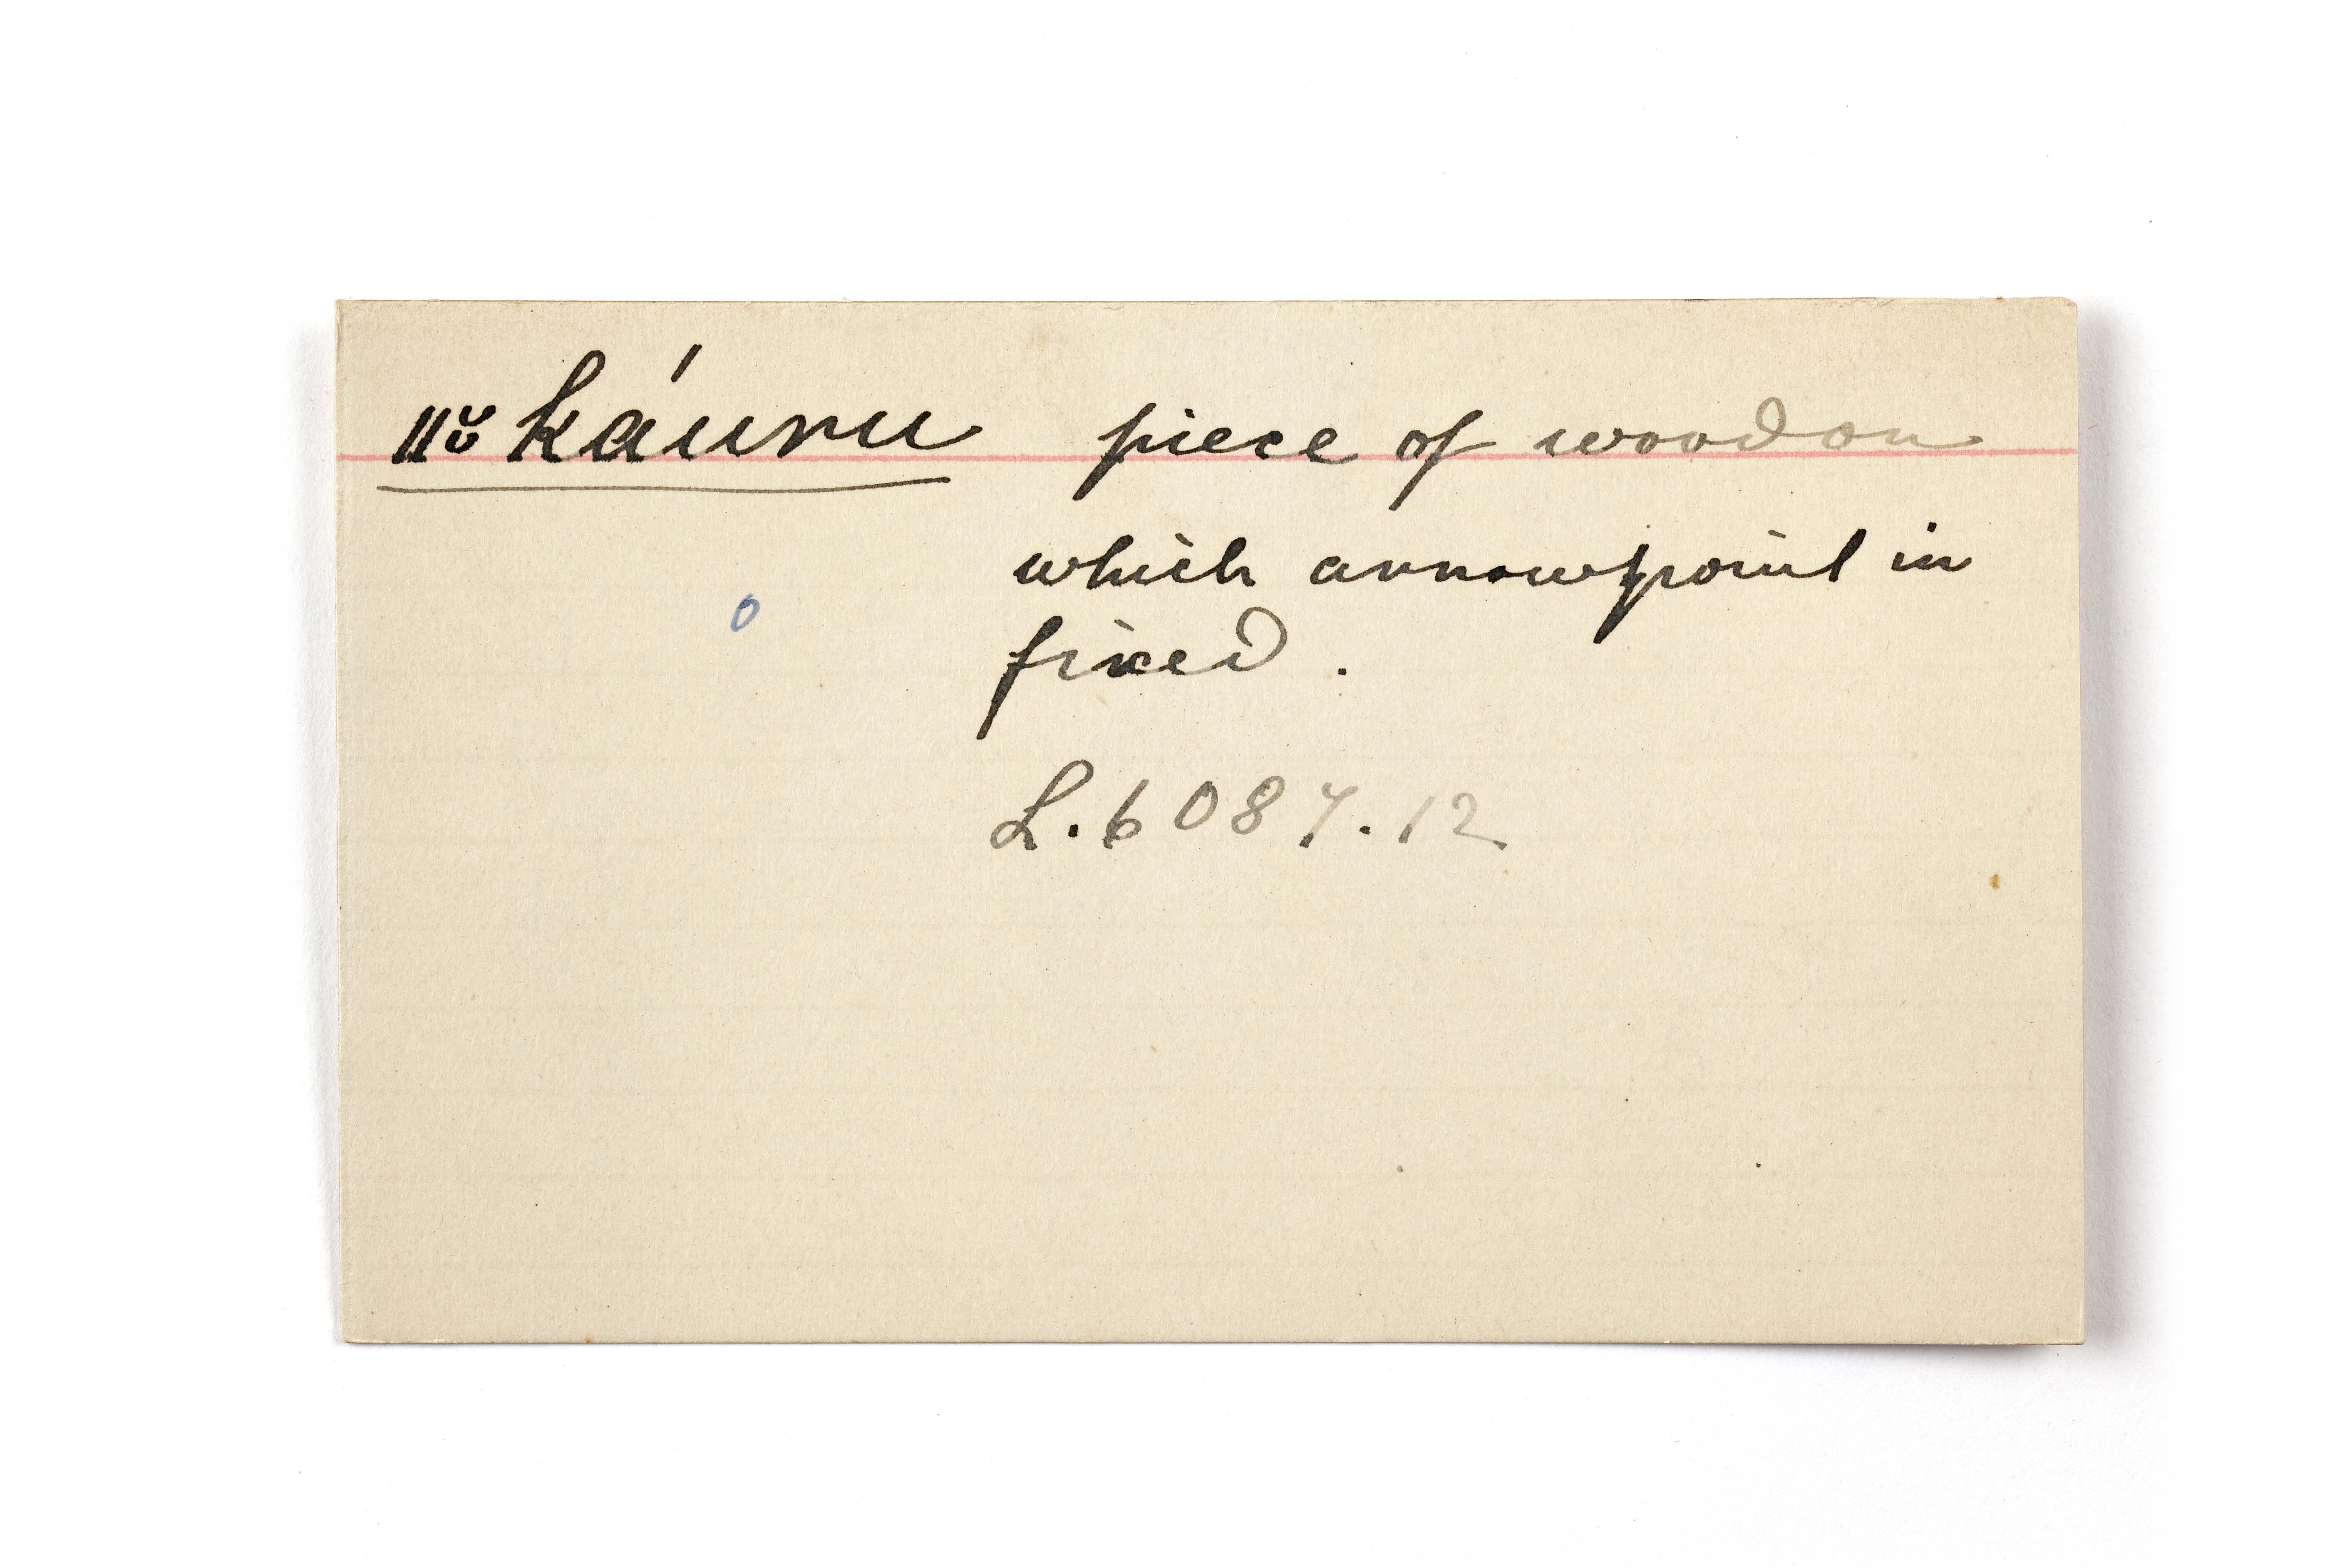 ǁᵕᵕkáuru piece of wood on
which arrowpoint in
fixed.
0
L. 6087.12